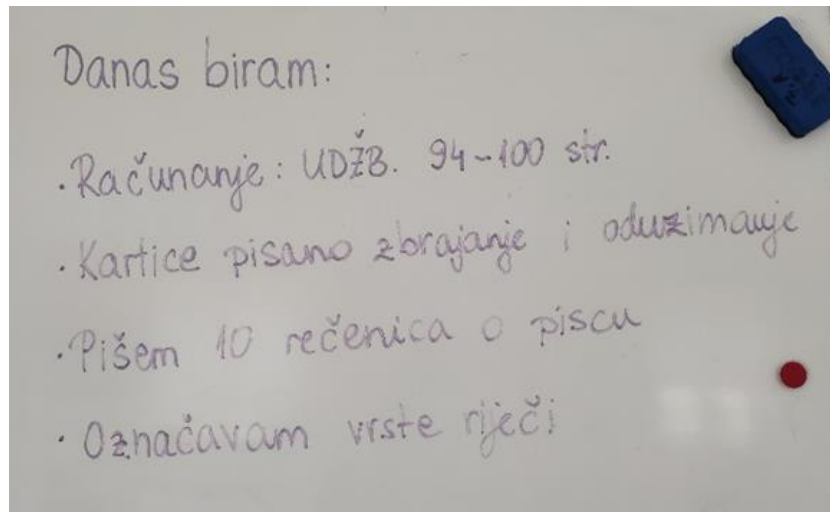 Danas biram:
· Računanje: UDŽB. 94-100 str.
· Kartice pisano zbrajanje i oduzimanje
· Pišem 10 rečenica o piscu
· Označavam vrste riječi